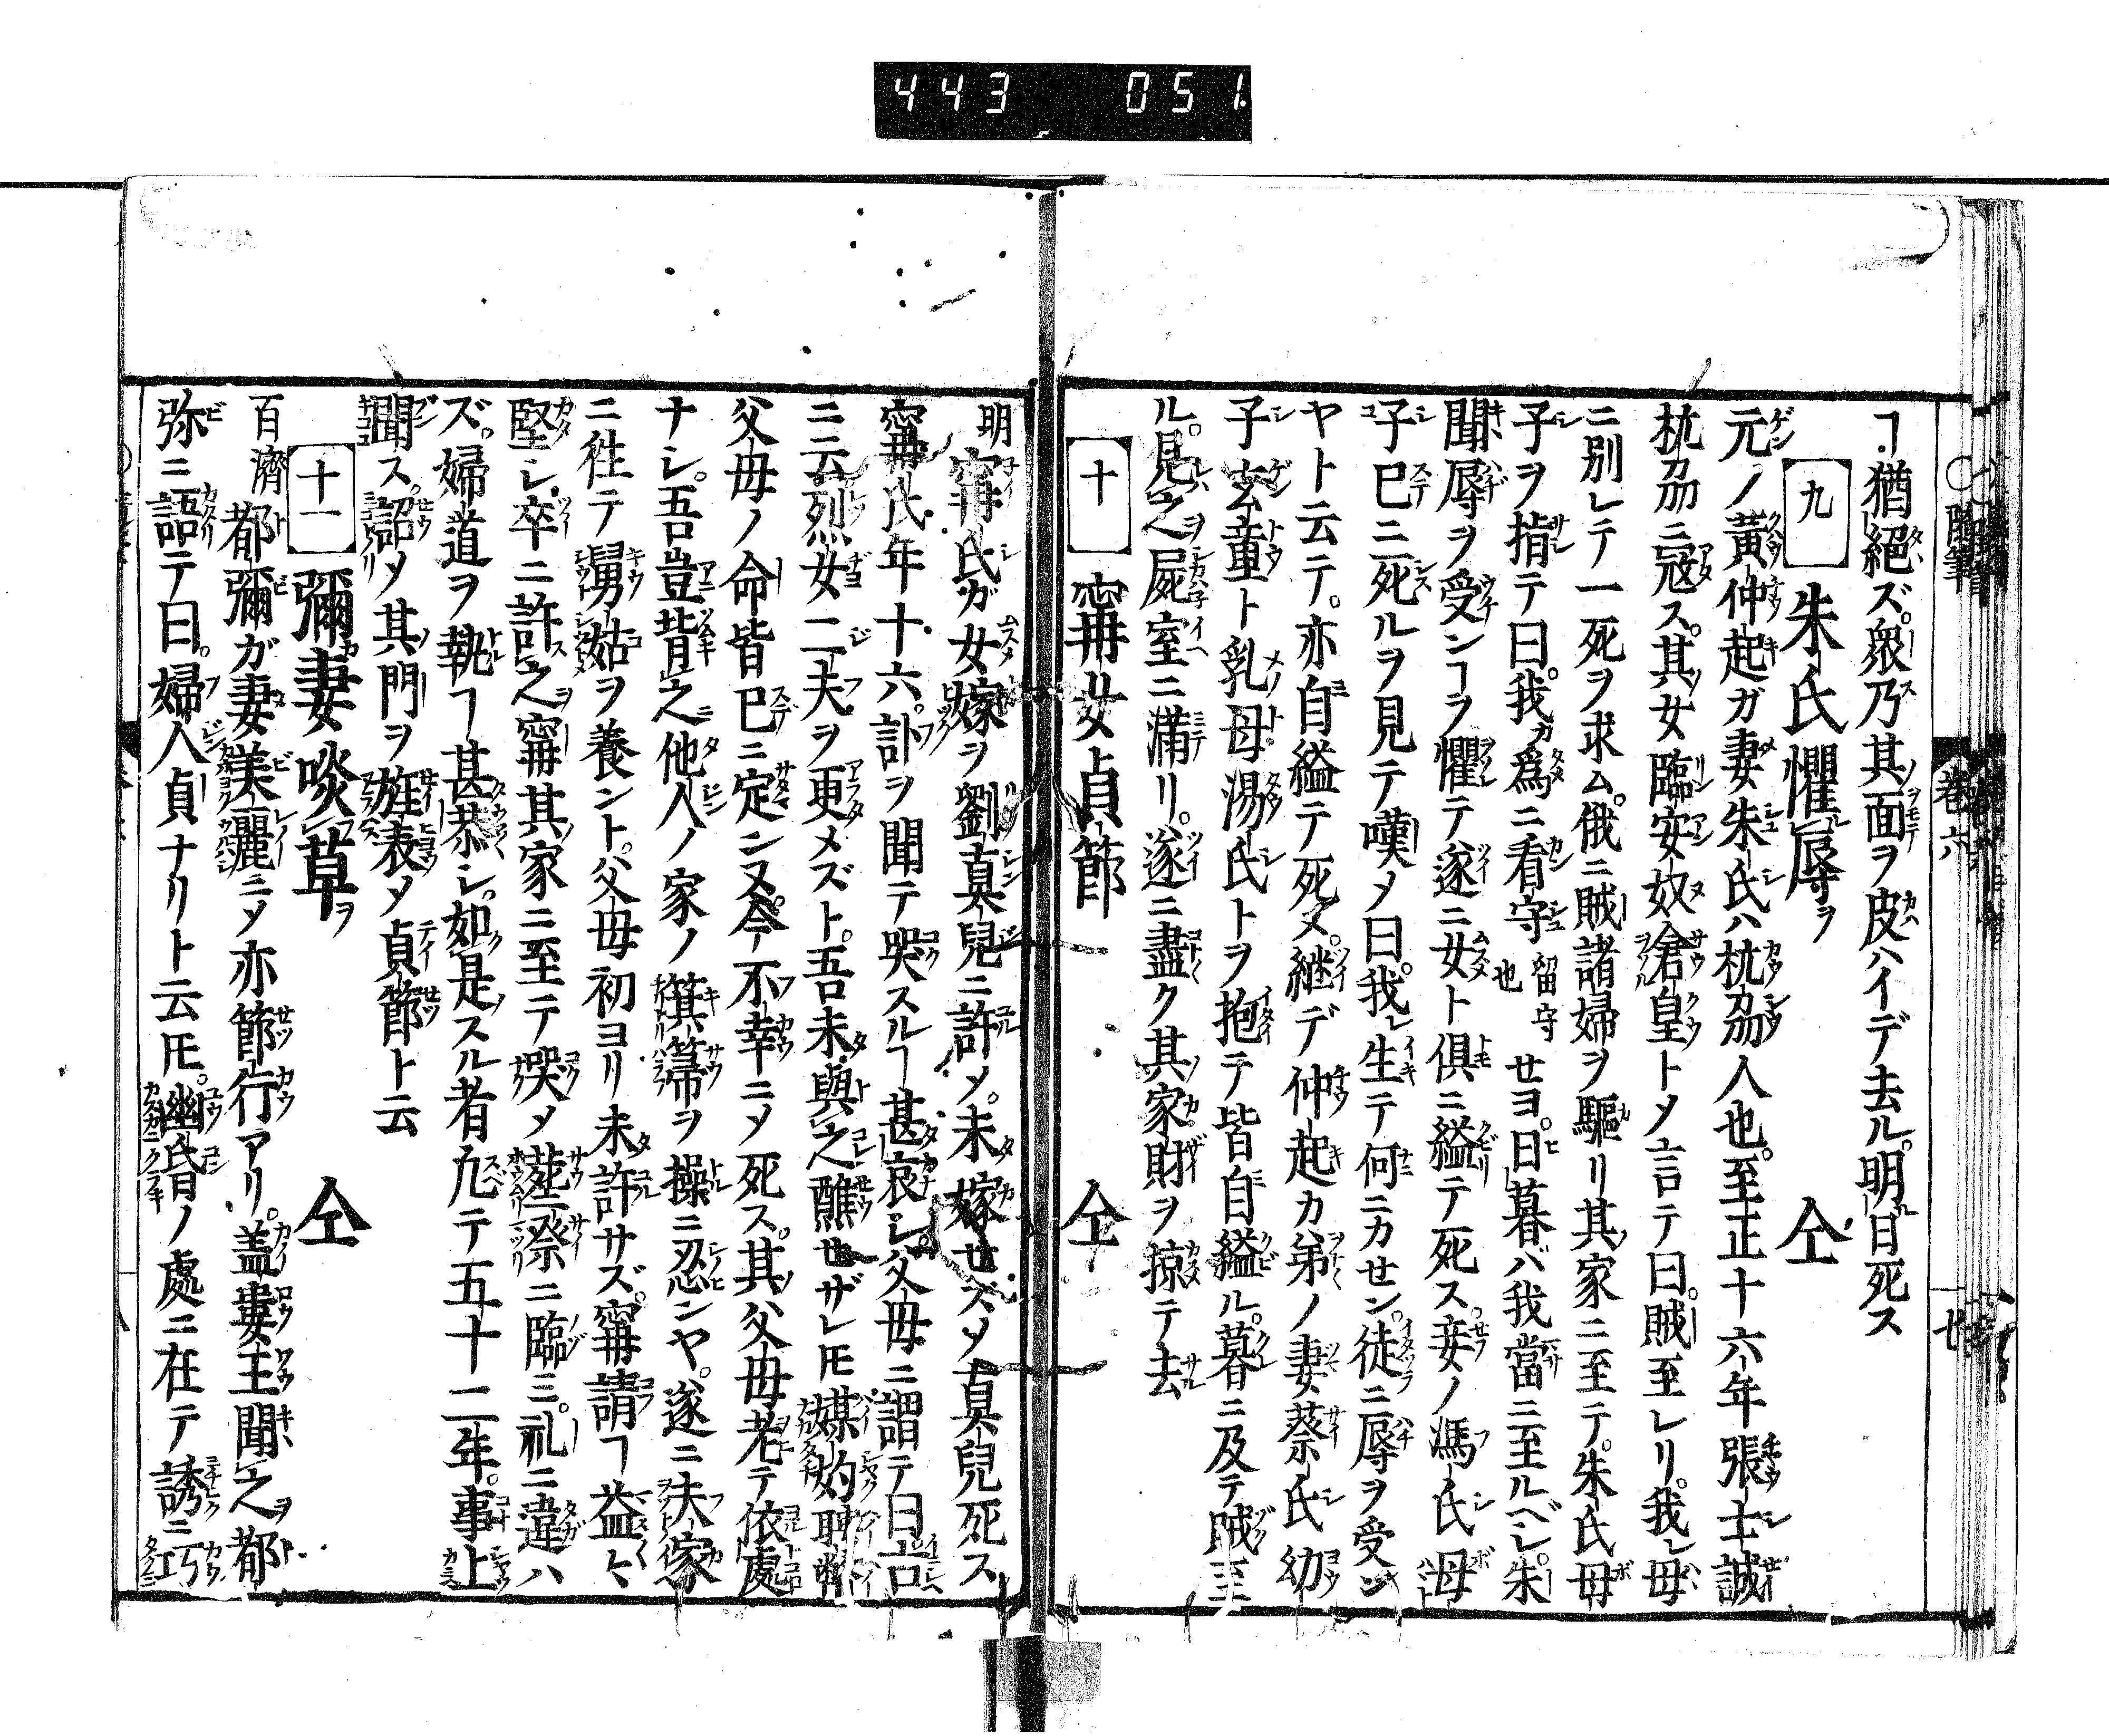 443 051
ヿ猶絕ズ。衆乃其面ヲ皮ハイデ去ル。明日死ス
九 朱氏懼辱ヲ 仝
元ノ黃仲起ガ妻朱氏ハ杭刕人也。至正十六年張士誠
杭刕ニ寇ス。其女臨安奴倉皇トメ言テ曰。賊至レリ。我レ母
ニ別レテ一死ヲ求ム。俄ニ賊諸婦ヲ驅リ其家ニ至テ。朱氏母
子ヲ指テ曰。我カ爲ニ看守留守也セヨ。日暮バ我當ニ至ルベシ。朱
聞辱ヲ受ンヿヲ懼テ遂ニ女ト俱ニ縊テ死ス。妾ノ馮氏母
子已ニ死ルヲ見テ嘆メ曰。我レ生テ何ニカセン。徒ニ辱ヲ受ン
ヤト云テ。亦自縊テ死ヌ。継デ仲起カ弟ノ妻蔡氏幼
子玄童ト乳母湯氏トヲ抱テ皆自縊ル。暮ニ及テ賊至
ル。見之屍室ニ滿リ。遂ニ盡ク其家財ヲ掠テ去
十 寗女貞節 仝
明寗氏ガ女嫁ヲ劉眞兒ニ許メ。未嫁セズメ眞兒死ス
寗氏年十六。訃ヲ聞テ哭スルヿ甚哀シ。父母ニ謂テ曰。古
ニ云烈女二夫ヲ更メズト。吾未與之醮セザレ𪜈媒妁聘幣
父母ノ命皆已ニ定ン又今不幸ニメ死ス。其父母老テ依處
ナシ。吾豈背之他人ノ家ノ箕箒ヲ操ニ忍ンヤ。遂ニ夫家
ニ徃テ舅姑ヲ養ント。父母初ヨリ未許サズ。寗請ヿ益々
堅シ。卒ニ許之寗其家ニ至テ哭メ葬祭ニ臨ミ。礼ニ違ハ
ズ。婦道ヲ執ヿ甚恭シ。如是スル者凢テ五十二年。事上
聞ス。詔メ其門ヲ旌表メ貞節ト云
十一 彌妻啖草ヲ 仝
百濟都彌ガ妻美麗ニメ亦節行アリ。盖婁王聞之都
弥ニ語テ曰。婦人貞ナリト云𪜈。幽昏ノ處ニ在テ誘ニ巧